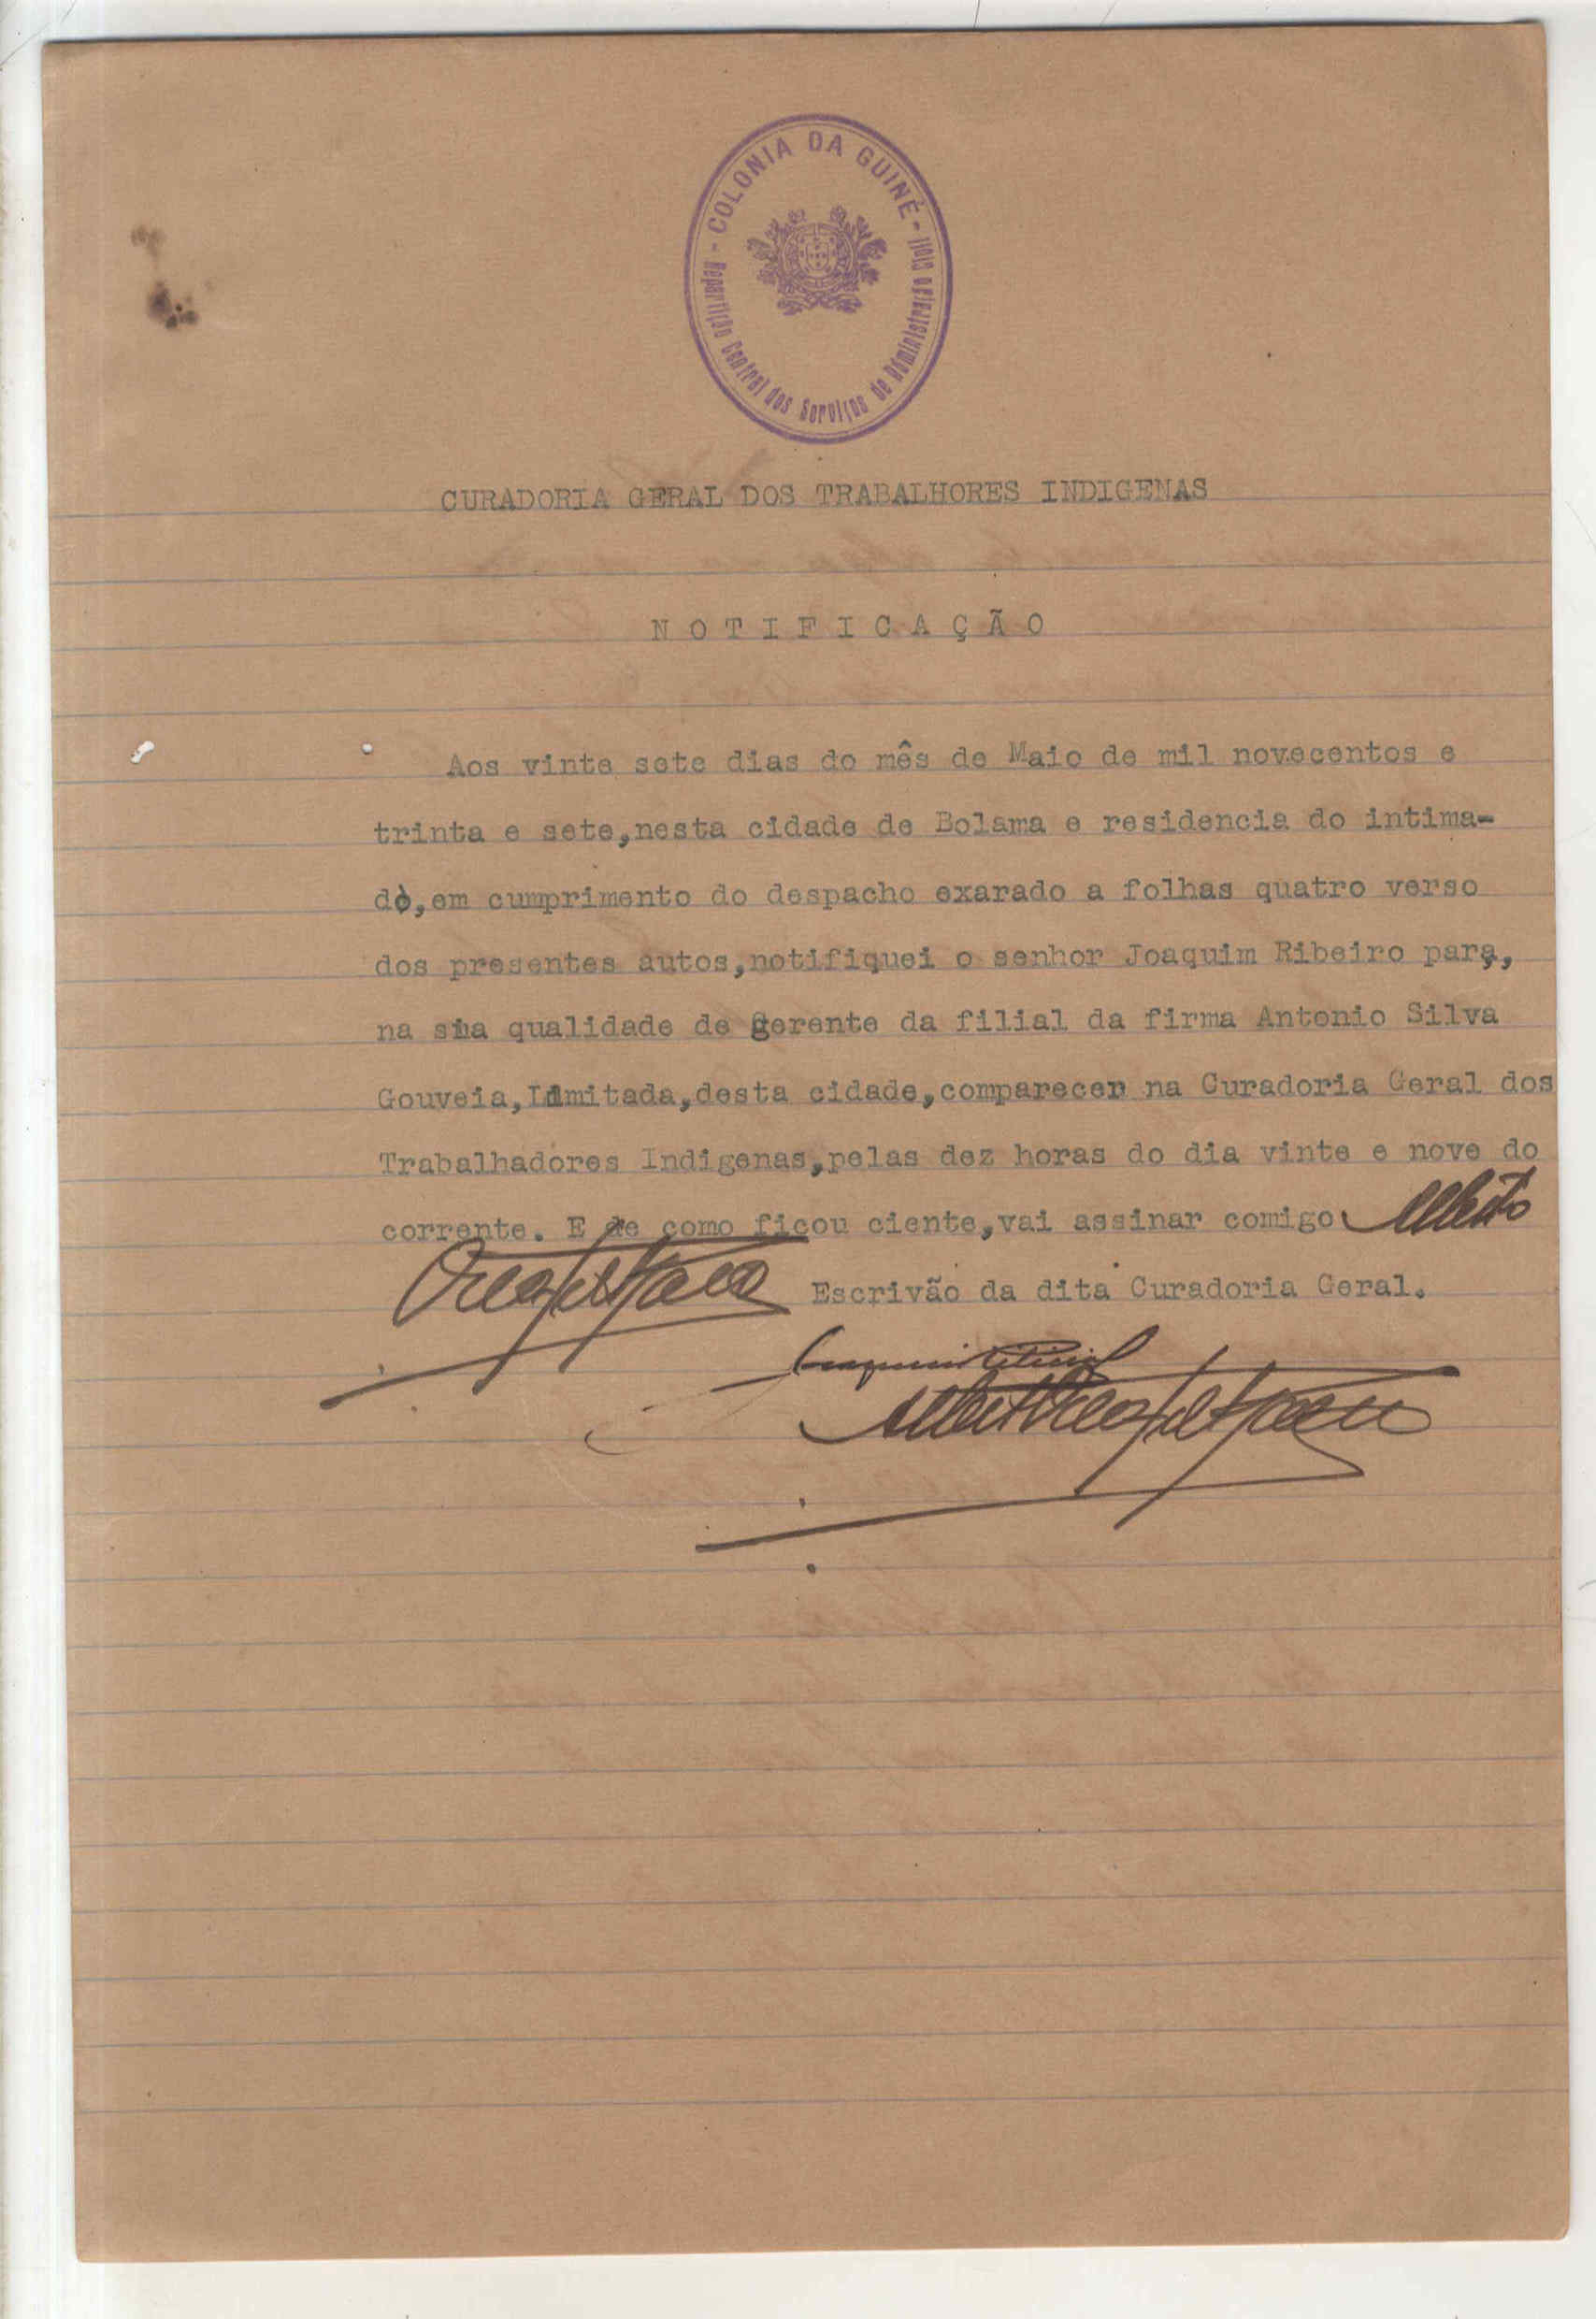 - COLONIA DA GUINÉ -
Repartição Central dos Serviços de Administração Civil
CURADORIA GERAL DOS TRABALHORES INDIGENAS
NOTIFICAÇÃO
Aos vinte sete dias do mês de Maio de mil novecentos e
trinta e sete,nesta cidade de Bolama e residencia do intima-
do,em cumprimento do despacho exarado a folhas quatro verso
dos presentes autos,notifiquei o senhor Joaquim Ribeiro para,
na sua qualidade de gerente da filial da firma Antonio Silva
Gouveia,Limitada,desta cidade,comparecer na Curadoria Geral dos
Trabalhadores Indigenas,pelas dez horas do dia vinte e nove do
corrente. E de como ficou ciente,vai assinar comigo Alberto
Escrivão da dita Curadoria Geral.